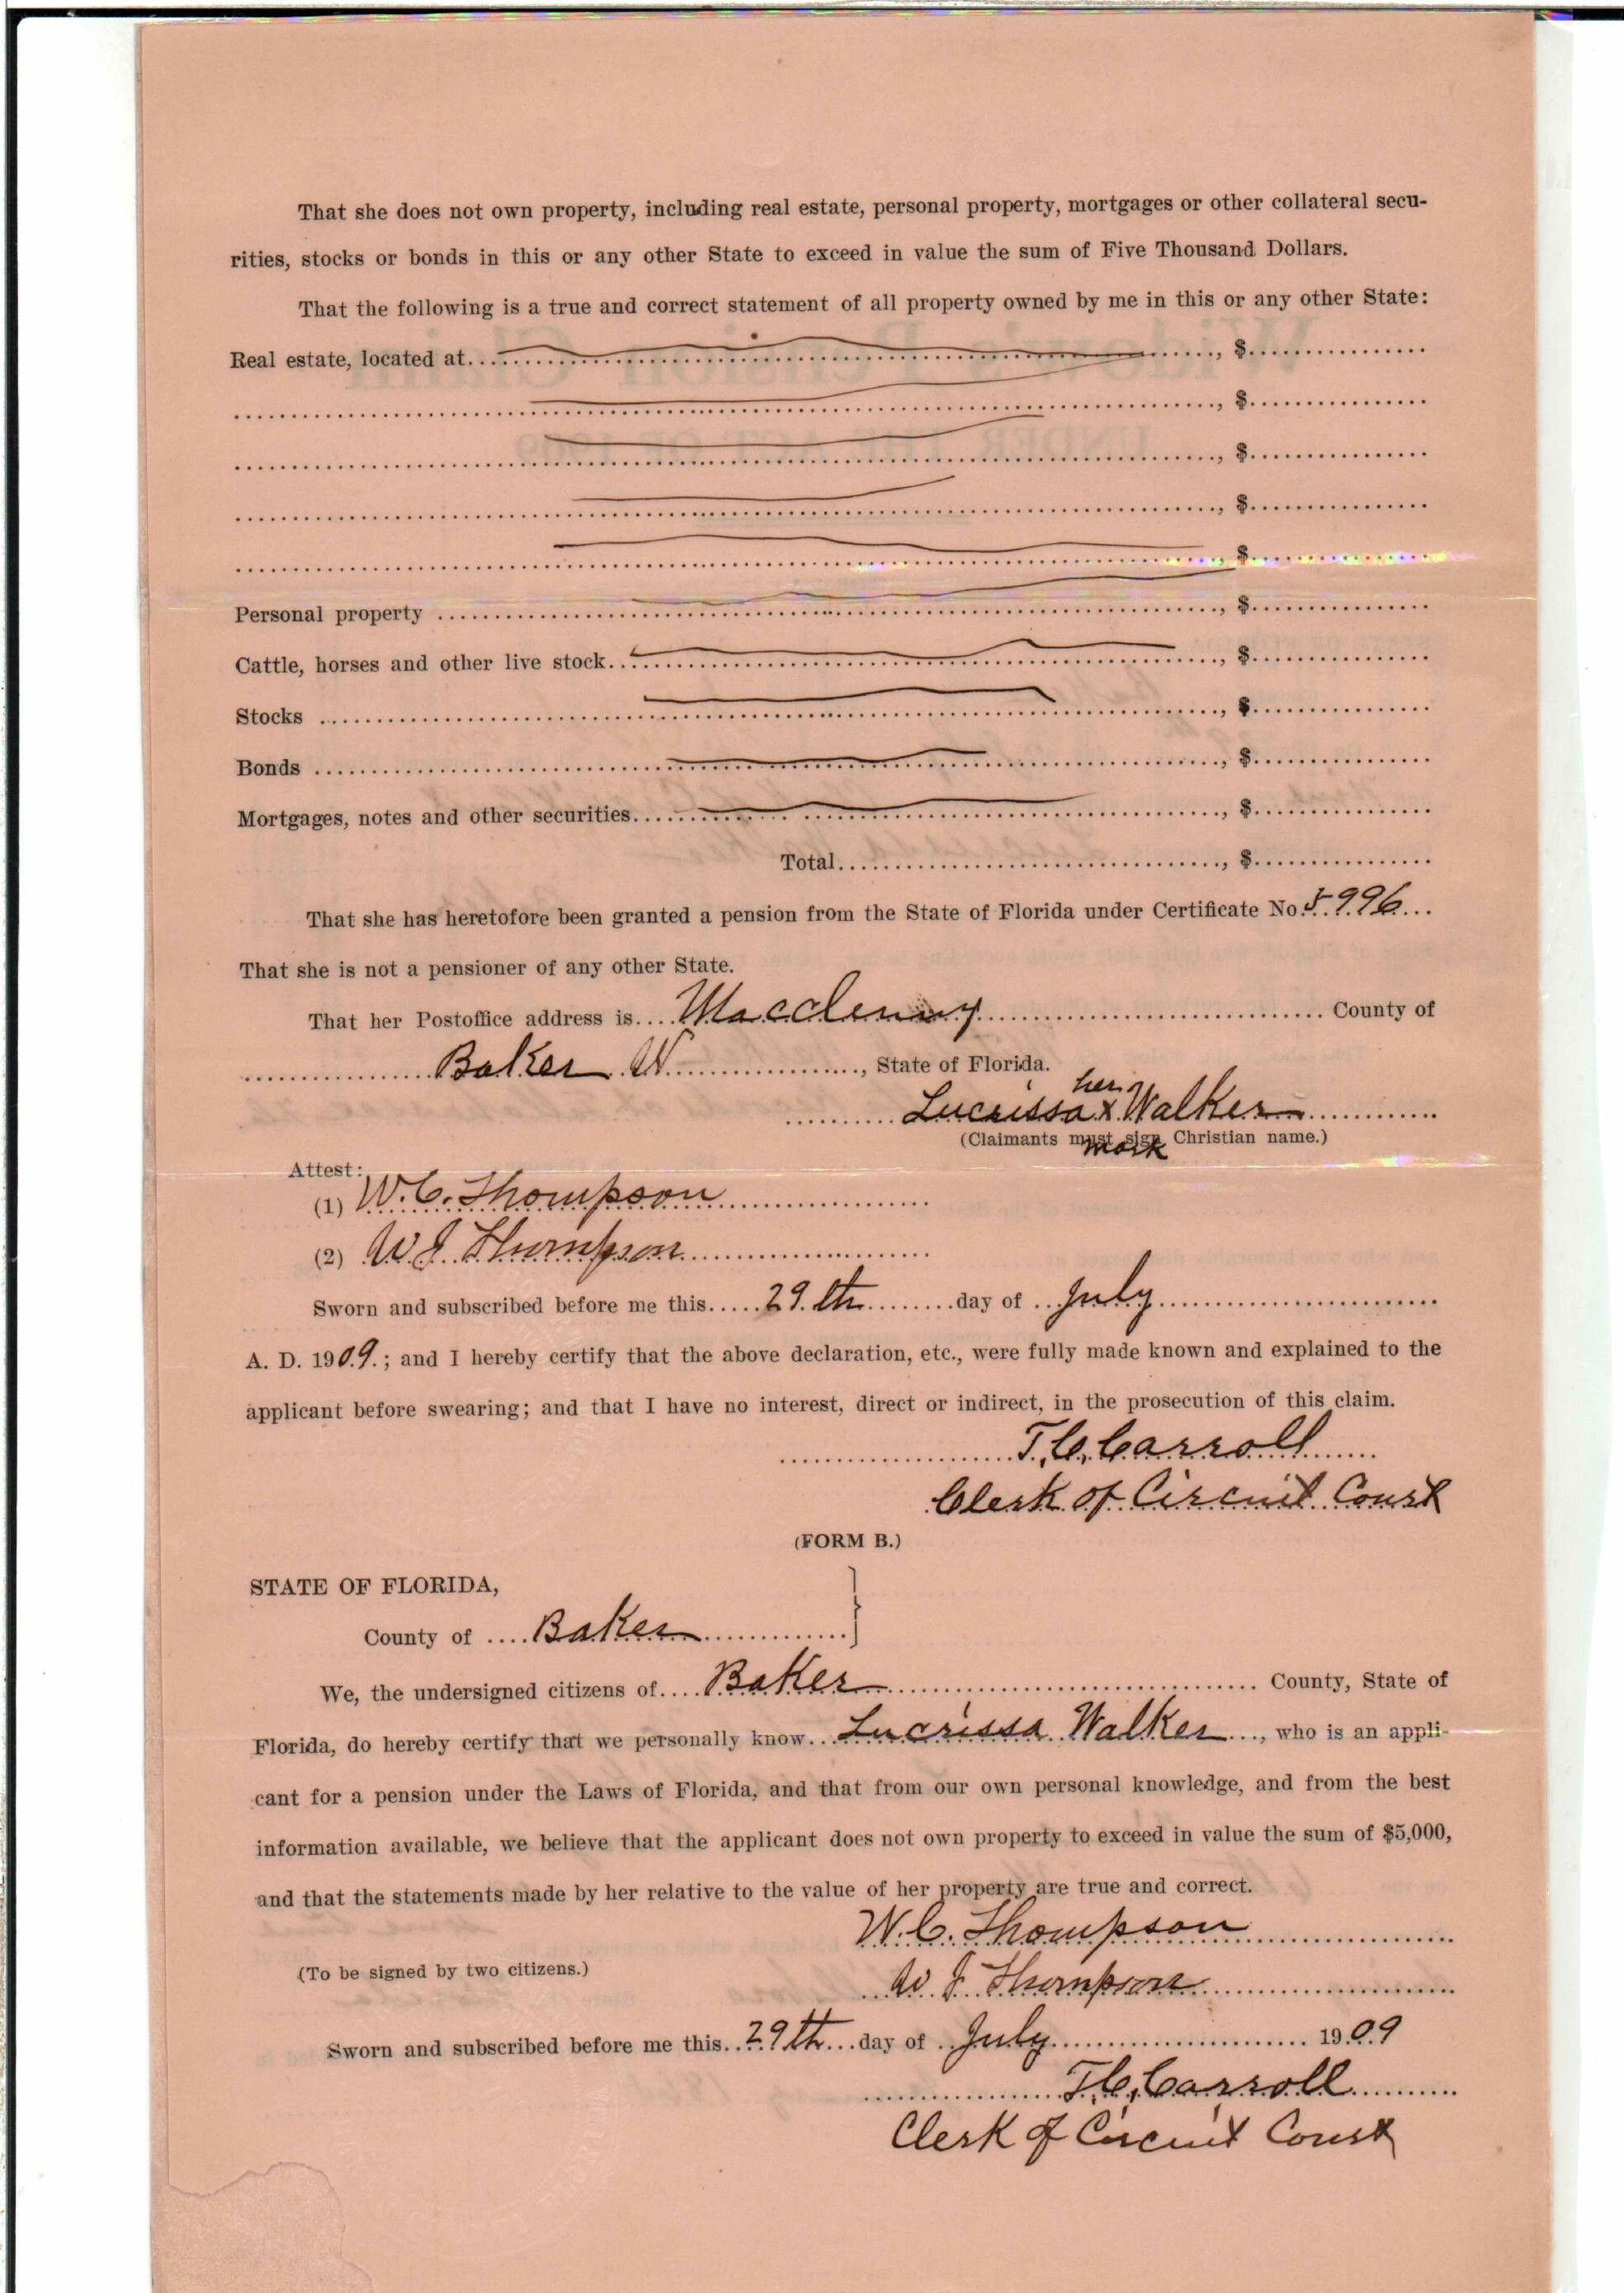 That she does not own property, including real estate, personal property, mortgages or other collateral secu-
rities, stocks or bonds in this or any other State to exceed in value the sum of Five Thousand Dollars.
That the following is a true and correct statement of all property owned by me in this or any other State:
Real estate, located at ........, $........
........, $........
........, $........
........, $........
........, $........
Personal property ........, $........
Cattle, horses and other live stock ........, $........
Stocks ........, $........
Bonds ........, $........
Mortgages, notes and other securities ........, $........
Total ........, $........
That she has heretofore been granted a pension from the State of Florida under Certificate No. 5996
That she is not a pensioner of any other State.
That her Postoffice address is Macclenny County of
Baker, State of Florida.
her
Lucrissa x Walker
(Claimants must sign Christian name.)
mark
Attest:
(1) W. C. Thompson
(2) W J Thompson
Sworn and subscribed before me this 29th day of July
A. D. 1909; and I hereby certify that the above declaration, etc., were fully made known and explained to the
applicant before swearing; and that I have no interest, direct or indirect, in the prosecution of this claim.
T. C. Carroll
Clerk of Circuit Court
(FORM B.)
STATE OF FLORIDA,
County of Baker
We, the undersigned citizens of Baker County, State of
Florida, do hereby certify that we personally know Lucrissa Walker, who is an appli-
cant for a pension under the Laws of Florida, and that from our own personal knowledge, and from the best
information available, we believe that the applicant does not own property to exceed in value the sum of $5,000,
and that the statements made by her relative to the value of her property are true and correct.
W. C. Thompson
(To be signed by two citizens.)
W J Thompson
Sworn and subscribed before me this 29th day of July 1909
T. C. Carroll
Clerk of Circuit Court